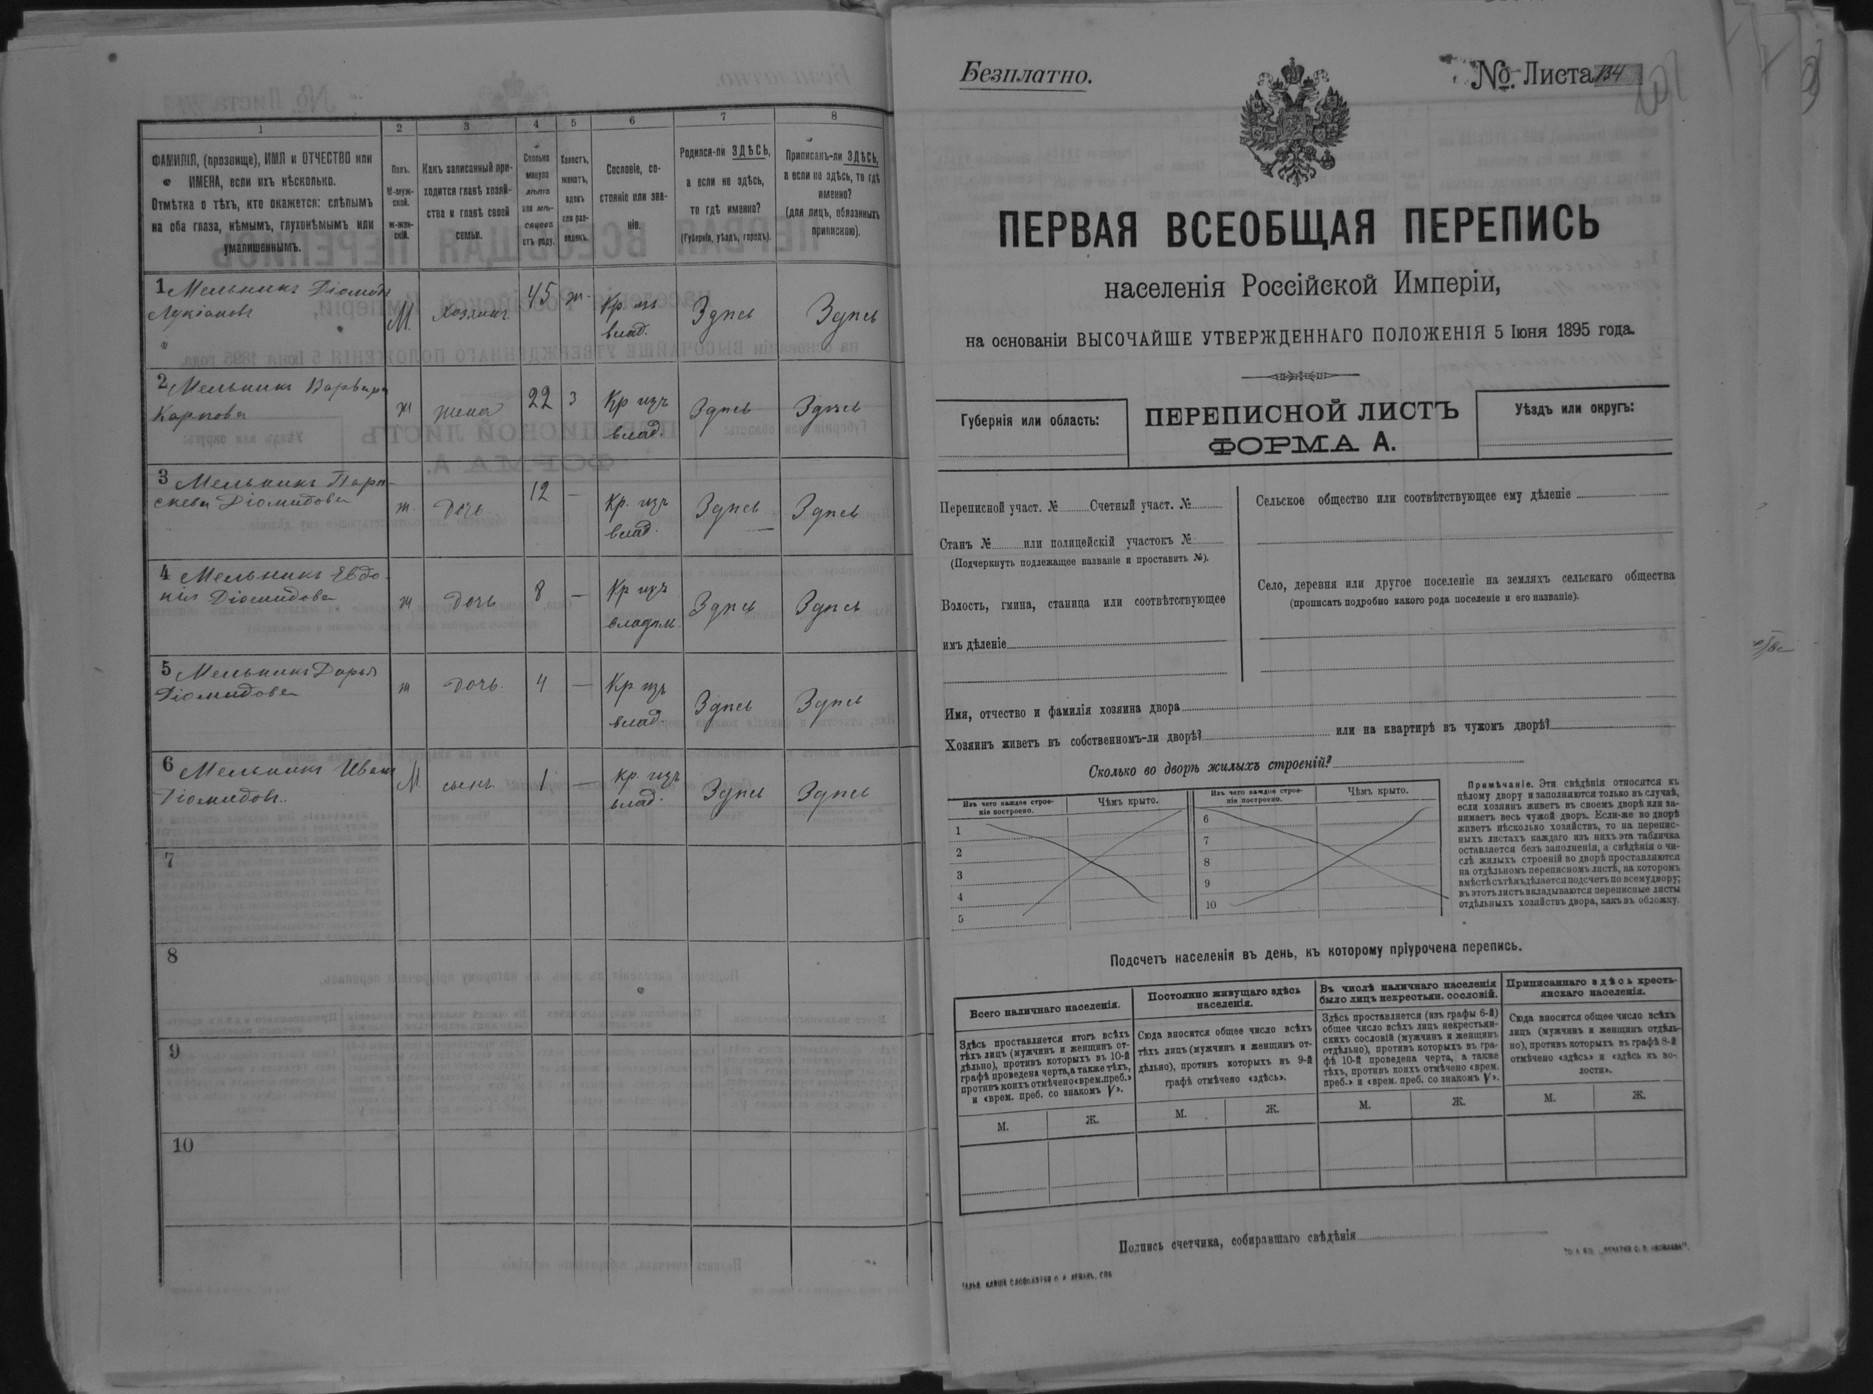 1
2
3
4
5
6
7
8
ФАМИЛІЯ, (прозвище), ИМЯ и ОТЧЕСТВО или
ИМЕНА, если ихъ нѣсколько.
Отмѣтка о тѣхъ, кто окажется: слѣпымъ
на оба глаза, нѣмымъ, глухонѣмымъ или
умалишеннымъ.
Полъ.
М-муж-
ской.
ж-жен-
скій.
Какъ записанный при-
ходится главѣ хозяй-
ства и главѣ своей
семьи.
Сколько
минуло
лѣтъ
или мѣ-
сяцевъ
отъ роду.
Холостъ,
женатъ,
вдовъ
или раз-
веденъ.
Сословіе, со-
стояніе или зва-
ніе.
Родился-ли ЗДѢСЬ,
а если не здѣсь,
то гдѣ именно?
(Губернія, уѣздъ, городъ).
Приписанъ-ли ЗДѢСЬ,
а если не здѣсь, то гдѣ
именно?
(для лицъ, обязанныхъ
припискою).
1 Мельникъ Діомидъ
Лукіановъ
М. хозяинъ 45 ж. Кр. изъ
влад. Здѣсь Здѣсь
2 Мельникъ Варвара
Карпова
ж жена 22 з Кр изъ
влад. Здѣсь Здѣсь
3 Мельникъ Пара-
скева Діомидова
ж. дочь 12 — Кр. изъ
влад. Здѣсь Здѣсь
4 Мельникъ Евдо-
кія Діомидова
ж дочь 8 — Кр изъ
Здѣсь Здѣсь
5 Мельникъ Дарья
Діомидова
ж дочь. 4 — Кр изъ
влад. Здѣсь Здѣсь
6 Мельникъ Иванъ
Діомидовъ.
М сынъ. 1 — Кр. изъ
влад. Здѣсь Здѣсь
7
8
9
10
Безплатно.
№ Листа 134
ПЕРВАЯ ВСЕОБЩАЯ ПЕРЕПИСЬ
населенія Россійской Имперіи,
на основаніи ВЫСОЧАЙШЕ УТВЕРЖДЕННАГО ПОЛОЖЕНІЯ 5 Іюня 1895 года.
Губернія или область:
ПЕРЕПИСНОЙ ЛИСТЪ
ФОРМА А.
Уѣздъ или округъ:
Переписной участ. № Счетный участ. №
Станъ № или полицейскій участокъ №
(Подчеркнуть подлежащее названіе и проставить №).
Волость, гмина, станица или соотвѣтствующее
имъ дѣленіе
Сельское общество или соотвѣтствующее ему дѣленіе
Село, деревня или другое поселеніе на земляхъ сельскаго общества
(прописать подробно какого рода поселеніе и его названіе).
Имя, отчество и фамилія хозяина двора
Хозяинъ живетъ въ собственномъ-ли дворѣ? или на квартирѣ въ чужомъ дворѣ?
Сколько во дворѣ жилыхъ строеній?
Изъ чего каждое строе-
ніе построено.
Чѣмъ крыто.
1
2
3
4
5
Изъ чего каждое строе-
ніе построено.
Чѣмъ крыто.
6
7
8
9
10
Примѣчаніе. Эти свѣдѣнія относятся къ
цѣлому двору и заполняются только въ случаѣ,
если хозяинъ живетъ въ своемъ дворѣ или за-
нимаетъ весь чужой дворъ. Если-же во дворѣ
живетъ нѣсколько хозяйствъ, то на перепис-
ныхъ листахъ каждаго изъ нихъ эта табличка
оставляется безъ заполненія, а свѣдѣнія о чи-
слѣ жилыхъ строеній во дворѣ проставляются
на отдѣльномъ переписномъ листѣ, на которомъ
вмѣстѣ съ тѣмъ дѣлается подсчетъ по всему двору;
въ этотъ листъ вкладываются переписные листы
отдѣльныхъ хозяйствъ двора, какъ въ обложку.
Подсчетъ населенія въ день, къ которому пріурочена перепись.
Всего наличнаго населенія.
Здѣсь проставляется итогъ всѣхъ
тѣхъ лицъ (мужчинъ и женщинъ от-
дѣльно), противъ которыхъ въ 10-й
графѣ проведена черта, а также тѣхъ,
противъ коихъ отмѣчено «врем. преб.»
и «врем. преб. со знакомъ V».
М. Ж.
Постоянно живущаго здѣсь
населенія.
Сюда вносится общее число всѣхъ
тѣхъ лицъ (мужчинъ и женщинъ от-
дѣльно), противъ которыхъ въ 9-й
графѣ отмѣчено «здѣсь».
М. Ж.
Въ числѣ наличнаго населенія
было лицъ некрестьян. сословій.
Здѣсь проставляется (изъ графы 6-й)
общее число всѣхъ лицъ некрестьян-
скихъ сословій (мужчинъ и женщинъ
отдѣльно), противъ которыхъ въ гра-
фѣ 10-й проведена черта, а также
тѣхъ, противъ коихъ отмѣчено «врем.
преб.» и «врем. преб. со знакомъ V».
М. Ж.
Приписаннаго здѣсь кресть-
янскаго населенія.
Сюда вносится общее число всѣхъ
лицъ (мужчинъ и женщинъ отдѣль-
но), противъ которыхъ въ графѣ 8-й
отмѣчено «здѣсь» и «здѣсь къ во-
лости».
М. Ж.
Подпись счетчика, собиравшаго свѣдѣнія